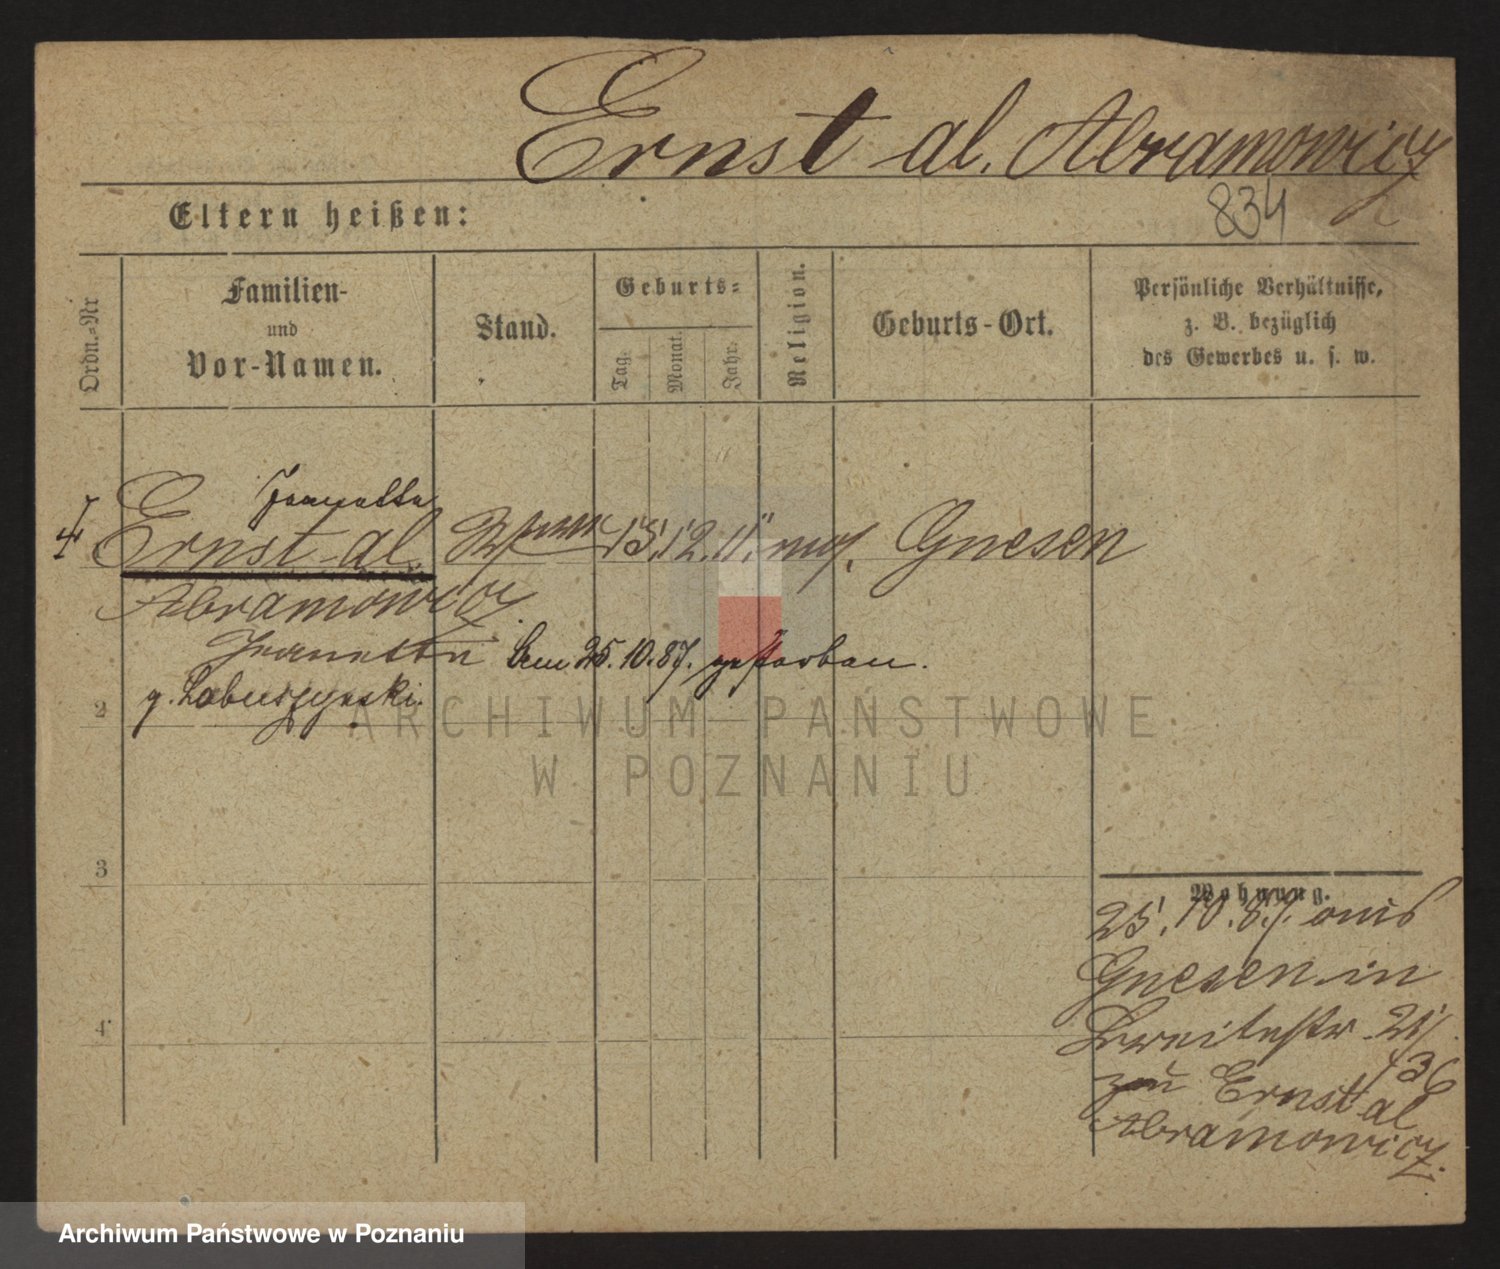 Ernst al. Abramowicz
834
Eltern heißen:
Ordn.-Nr
Familien-
und
Vor-Namen.
Stand.
Geburts-
Tag.
Monat.
Jahr.
Religion.
Geburts-Ort.
Persönliche Verhältnisse,
z. B. bezüglich
des Gewerbes u. s. w.
Jeanette
Ernst al. 15. 12. 11. mos. Gnesen
Abramowicz
Jeanette am 25.10.87. gestorben.
g. Labuszynski.
2
3
4
Wohnung.
25. 10. 87. aus
Gnesen in
Breitestr. 21/
436
zu Ernst al
Abramowicz.
ARCHIWUM PAŃSTWOWE
W POZNANIU
Archiwum Państwowe w Poznaniu